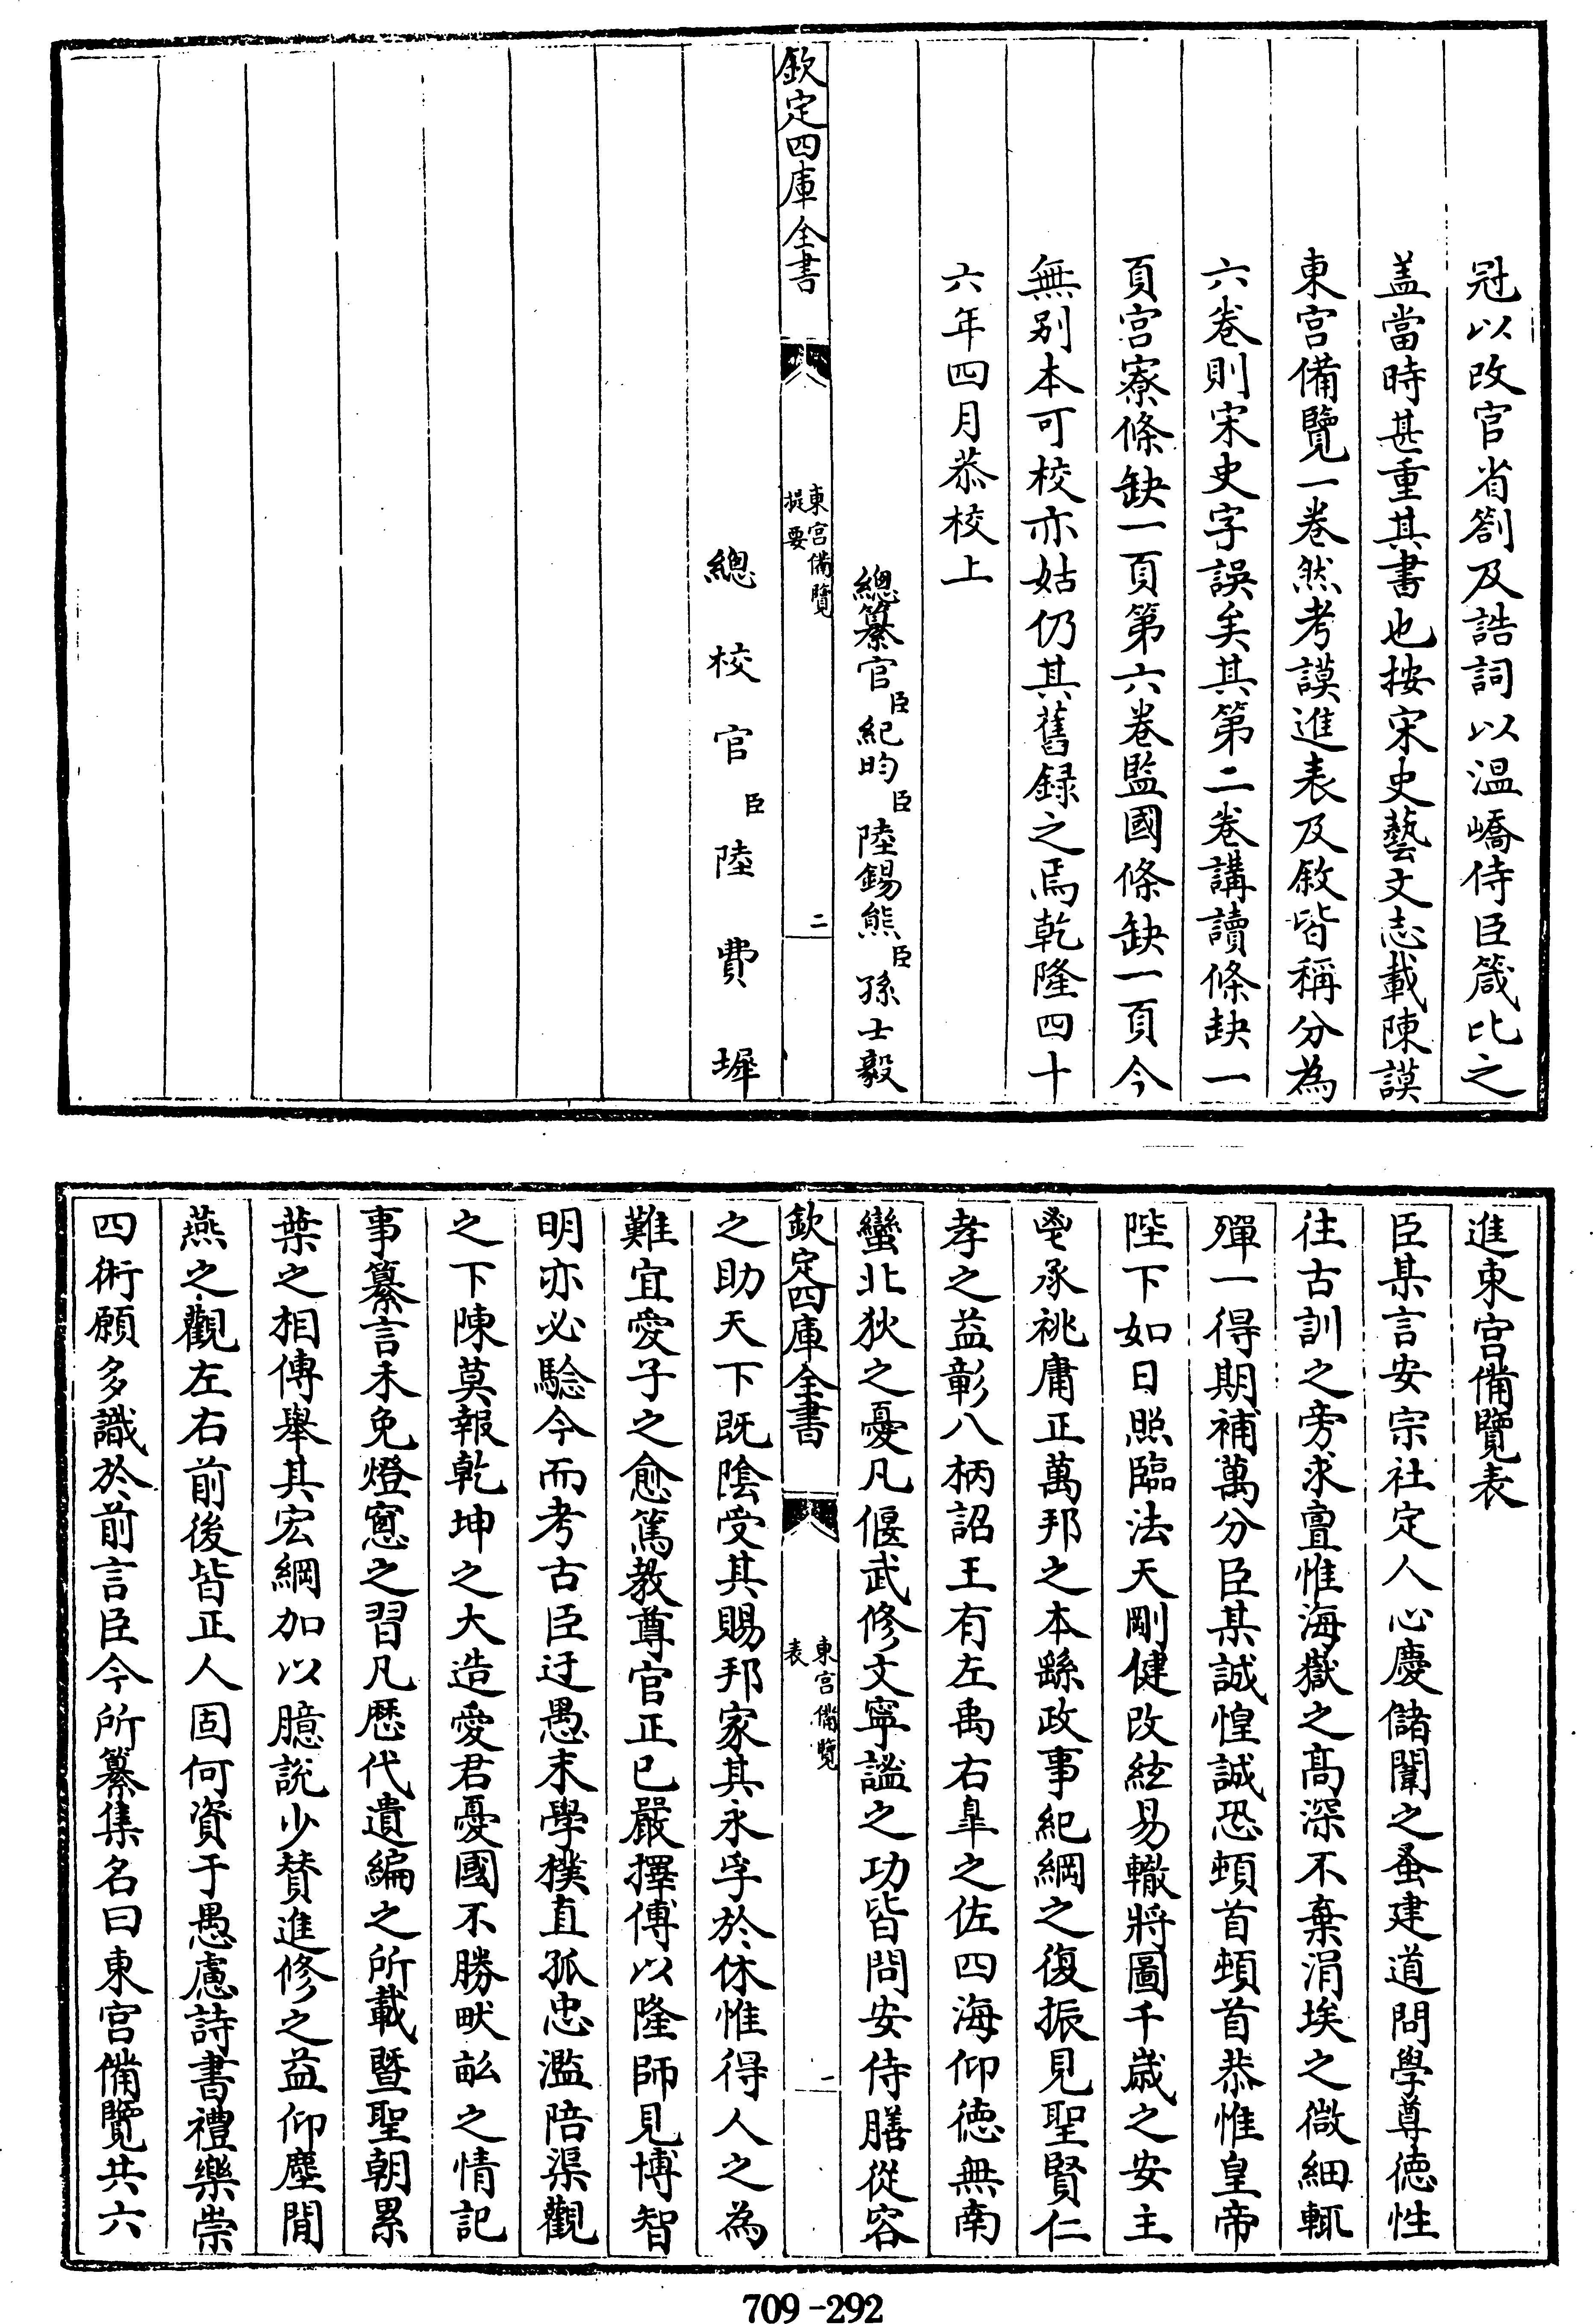 冠以改官省劄及誥詞以温嶠侍臣箴比之
盖當時甚重其書也按宋史藝文志載陳謨
東宫備覽一卷然考謨進表及敘皆稱分為
六卷則宋史字誤矣其第二卷講讀條缺一
頁宫寮條缺一頁第六卷監國條缺一頁今
無别本可校亦姑仍其舊録之焉乾隆四十
六年四月恭校上
總纂官臣紀昀臣陸錫熊臣孫士毅
欽定四庫全書
東宫備覽
提要
二
總校官臣陸費墀
進東宫備覽表
臣某言安宗社定人心慶儲闈之蚤建道問學尊徳性
往古訓之旁求亶惟海嶽之高深不棄涓埃之微細輒
殫一得期補萬分臣某誠惶誠恐頓首頓首恭惟皇帝
陛下如日照臨法天剛健改絃易轍將圖千歳之安主
鬯承祧庸正萬邦之本繇政事紀綱之復振見聖賢仁
孝之益彰八柄詔王有左禹右臯之佐四海仰徳無南
蠻北狄之憂凡偃武修文寧謐之功皆問安侍膳從容
欽定四庫全書
東宫備覽
表
一
之助天下既陰受其賜邦家其永孚於休惟得人之為
難宜愛子之愈篤教尊官正已嚴擇傅以隆師見博智
明亦必驗今而考古臣迂愚末學樸直孤忠濫陪渠觀
之下陳莫報乾坤之大造愛君憂國不勝畎畝之情記
事纂言未免燈窻之習凡歴代遺編之所載暨聖朝累
葉之相傳舉其宏綱加以臆説少賛進修之益仰塵閒
燕之觀左右前後皆正人固何資于愚慮詩書禮樂崇
四術願多識於前言臣今所纂集名曰東宫備覽共六
709-292